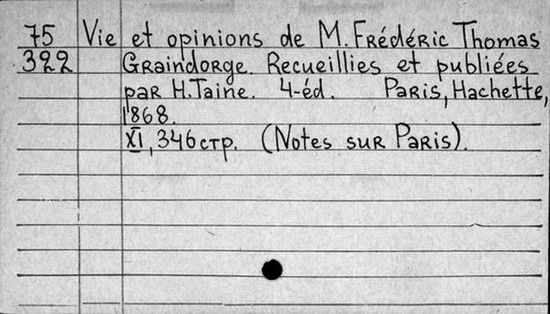 75 Vie et opinions de M. Frédéric Thomas
322 Graindorge. Recueillies et publiées
par H. Taine. 4-éd. Paris, Hachette,
1868.
XI, 346 стр. (Notes sur Paris).